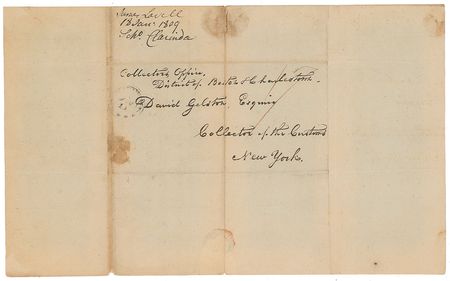 James Lovell
18 Jany 1809
Schr. Clarinda
Collectors Office,
District of Boston & Charlestown.
David Gelston, Esquire
Collector of the Customs
New York.